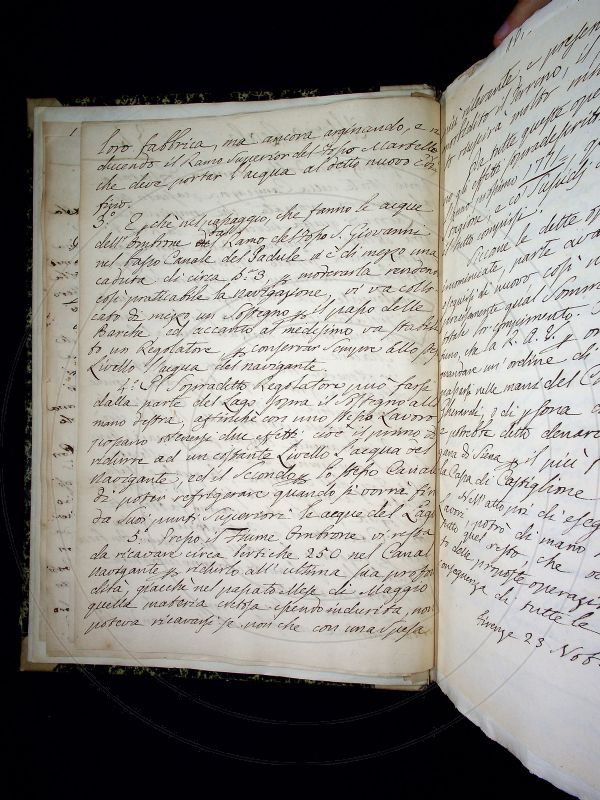 loro fabbrica, ma ancora arginando, e ri
ducendo il Ramo superior del Fosso Martello
che deve portar l'acqua al detto nuovo edi
fizio.
3.° E pchè nel passaggio, che fanno le acque
dell'Ombrone dal Ramo del Fosso S. Giovanni
nel Fosso Canale del Padule v'è di mezzo una
caduta di circa b.a 3 p moderarla rendendo
così praticabile la navigazione, vi va collo
cato di mezzo un Sostegno p il passo delle
Barche, ed accanto al medesimo va stabili
to un Regolatore p conservar sempre allo stesso
Livello l'acqua del navigante.
4.° Il Sopradetto Regolatore può farsi
dalla parte del Lago sopra il Sostegno alla
mano destra, affinchè con uno stesso Lavoro
possano ottenersi due effetti, cioè il primo di
ridurre ad un costante Livello l'acqua del
navigante, ed il Secondo p lo stesso Canale
di poter refrigerare quando si vorrà fin
da suoi punti superiori le acque del Lago
5.° Presso il Fiume Ombrone vi resta
da ricavare circa Pertiche 250 nel Canal
navigante p ridurlo all'ultima sua profon
dità, giacchè nel passato Mese di Maggio
quella materia cretosa essendo indurita, non
poteva ricavarsi se non che con una spesa
più rilevante, e presen
molto
Che tutte queste ope
no gli effetti
l'anno 1771
ragione, e co
il tutto compiuti.
Siccome le dette op
innominate, parte
di nuovo così
qual Somm
totale lor compimento.
sino, che la R. A. V.
mandare un'ordine di
nelle mani del C
e di psona
e potrebbe detto denaro
di Siena p il più
la Cassa di Castiglione
Dell'atto poi di eseg
lavori potrà di mano
tutto quel resto, che
to delle proposte operazi
conseguenza di tutte le
Firenze 23 Nob.